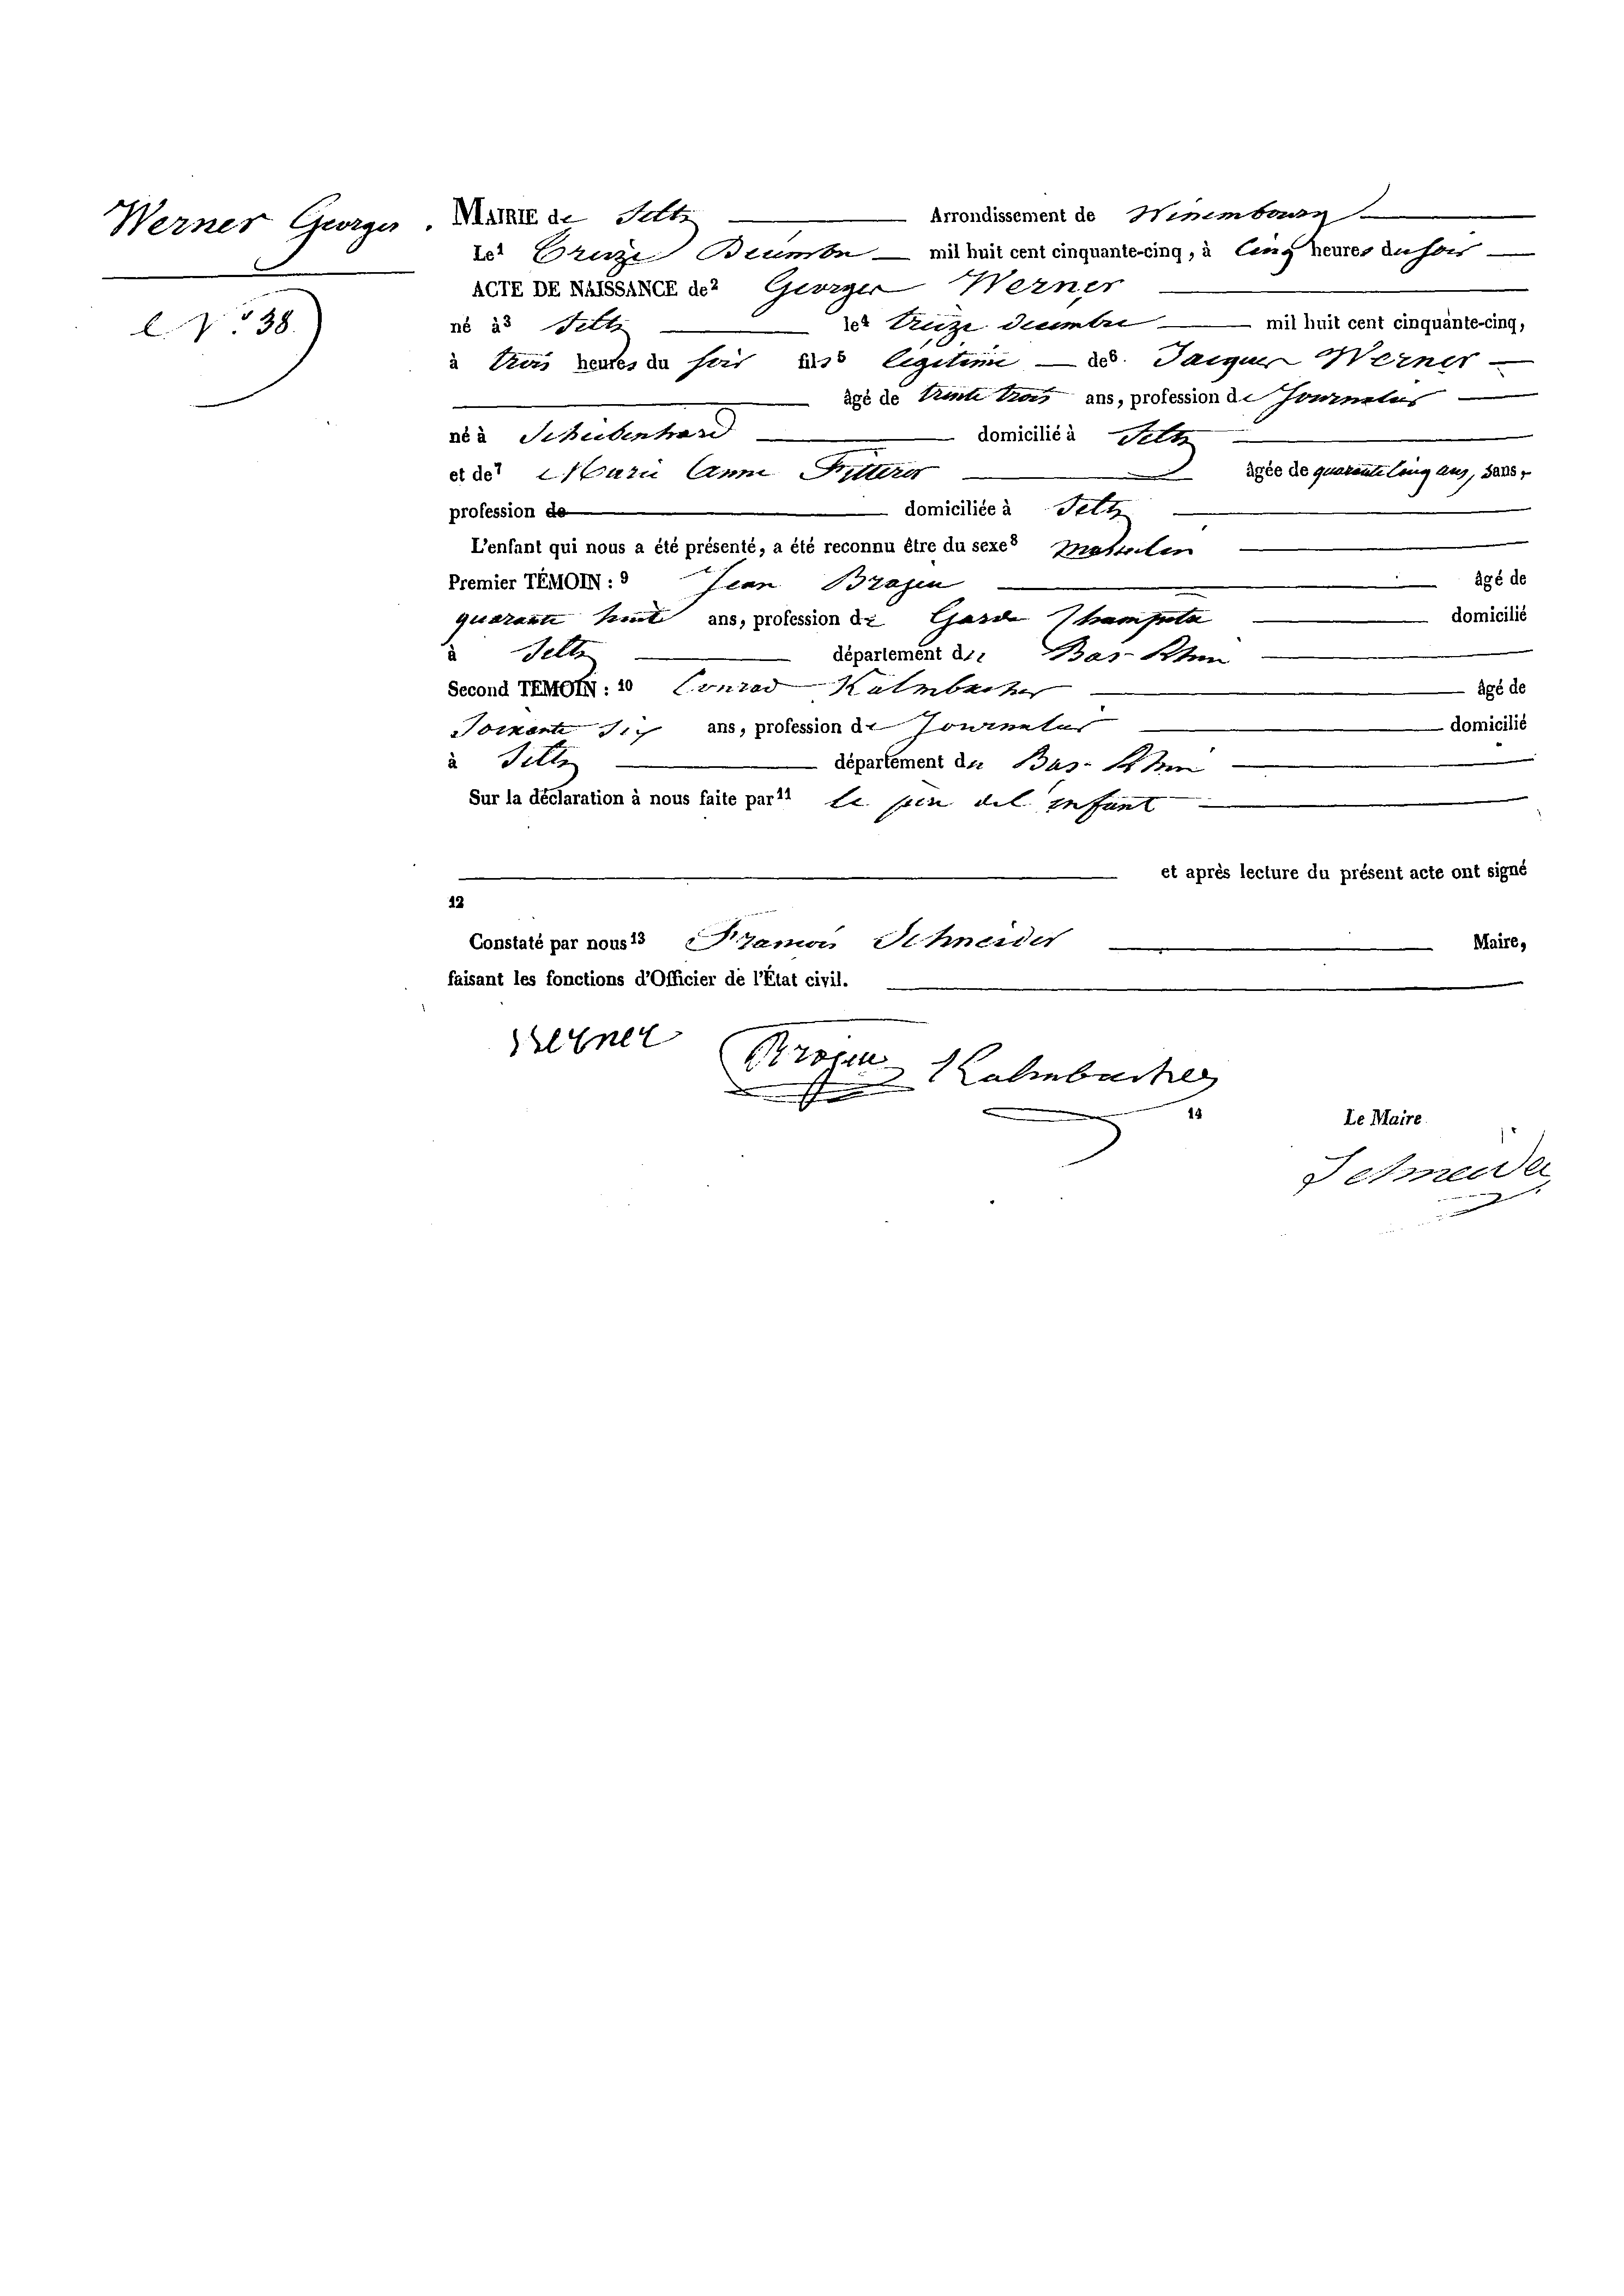 Werner Georges.
N.° 38.
MAIRIE de Seltz Arrondissement de Wissembourg
Le1 Treize Décembre mil huit cent cinquante-cinq, à cinq heures du soir
ACTE DE NAISSANCE de2 Georges Werner
né à3 Seltz le4 treize décembre mil huit cent cinquante-cinq,
à trois heures du soir fils5 légitime de6. Jacques Werner
âgé de trente trois ans, profession de Journalier
né à Scheibenhard domicilié à Seltz
et de7 Marie Anne Fritterer âgée de quarante cinq ans, sans
profession de domiciliée à Seltz
L'enfant qui nous a été présenté, a été reconnu être du sexe8 masculin
Premier TÉMOIN : 9 Jean âgé de
quarante huit ans, profession de Garde Champetre domicilié
à Seltz département du Bas-Rhin
Second TÉMOIN : 10 Conrad Kalmbacher âgé de
Soixante Six ans, profession de Journalier domicilié
à Seltz département du Bas-Rhin
Sur la déclaration à nous faite par11 le père de l'enfant
et après lecture du présent acte ont signé
12
Constaté par nous13 François Schneider Maire,
faisant les fonctions d'Officier de l'État civil.
Werner Kalmbacher
14 Le Maire
Schneider